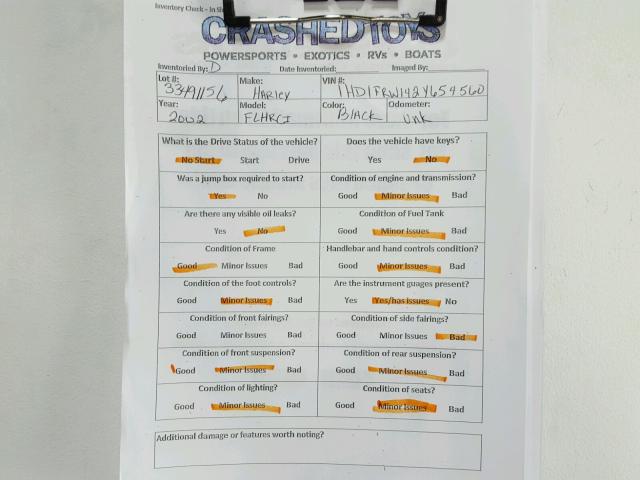 Inventory Check – In Sh
CRASHEDTOYS
POWERSPORTS • EXOTICS • RVs • BOATS
Inventoried By: D Date Inventoried: Imaged By:
Lot #: 33491156 Make: HARLEY VIN #: 1HD1FRW142Y654560
Year: 2002 Model: FLHRCI Color: BlACK Odometer: Unk
What is the Drive Status of the vehicle? Does the vehicle have keys?
No Start Start Drive Yes No
Was a jump box required to start? Condition of engine and transmission?
Yes No Good Minor Issues Bad
Are there any visible oil leaks? Condition of Fuel Tank
Yes No Good Minor Issues Bad
Condition of Frame Handlebar and hand controls condition?
Good Minor Issues Bad Good Minor Issues Bad
Condition of the foot controls? Are the instrument guages present?
Good Minor Issues Bad Yes Yes/has issues No
Condition of front fairings? Condition of side fairings?
Good Minor Issues Bad Good Minor Issues Bad
Condition of front suspension? Condition of rear suspension?
Good Minor Issues Bad Good Minor Issues Bad
Condition of lighting? Condition of seats?
Good Minor Issues Bad Good Minor Issues Bad
Additional damage or features worth noting?